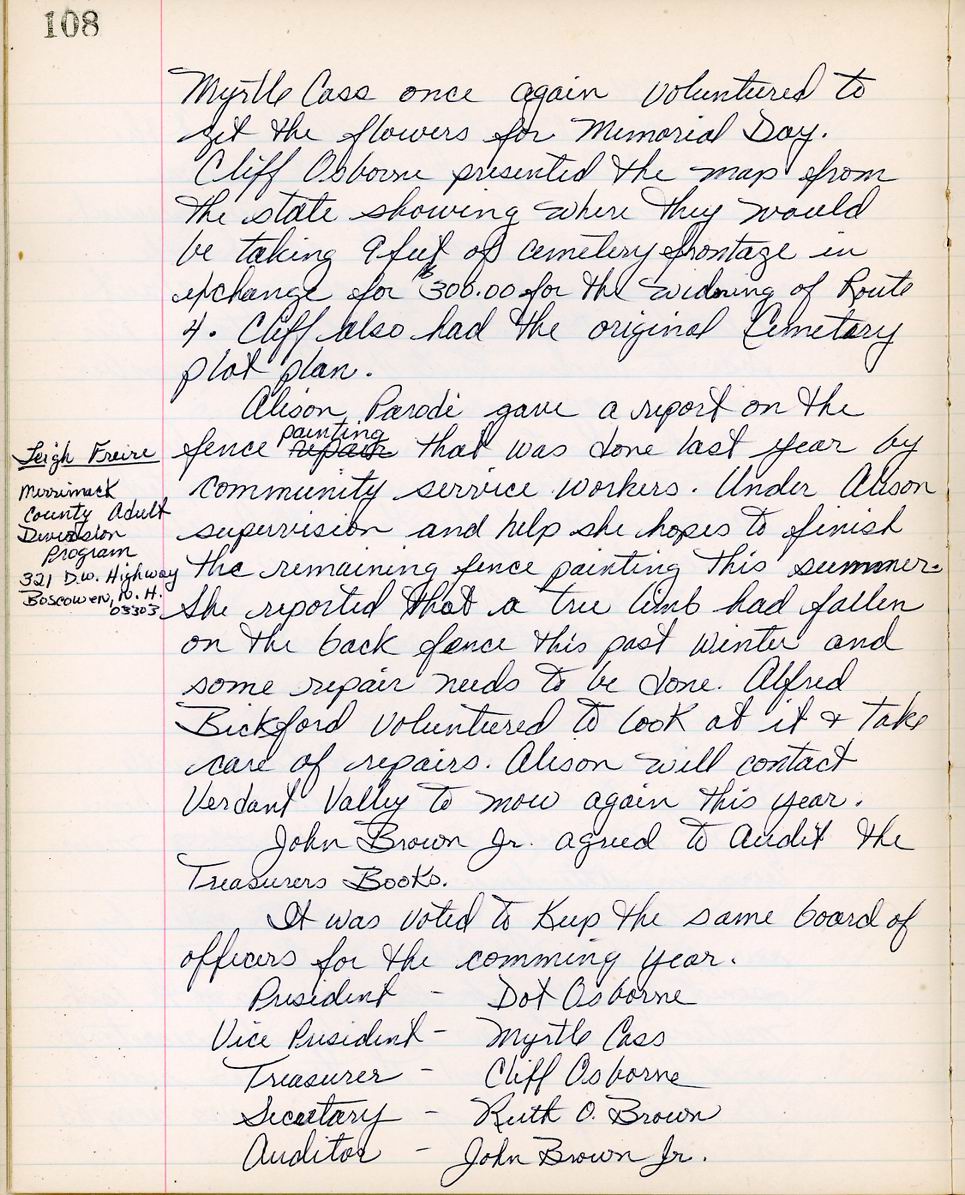 108
Myrtle Cass once again voluntured to
get the flowers for Memorial Day.
Cliff Osborne presented the map from
the state showing where they would
be taking 9 feet of cemetery frontage in
exchange for $300.00 for the widning of Route
4. Cliff also had the original Cemetary
plot plan.
Alison Parodi gave a report on the
painting
fence repair that was done last year by
community service workers. Under Alison
supervision and help she hopes to finish
the remaining fence painting this summer.
She reported that a tree limb had fallen
on the back fence this past winter and
some repair needs to be done. Alfred
Bickford voluntured to look at it & take
care of repairs. Alison will contact
Verdant Valley to mow again this year.
John Brown Jr. agreed to Audit the
Treasurers Books.
It was voted to Keep the same board of
officers for the comming year.
President - Dot Osborne
Vice President - Myrtle Cass
Treasurer - Cliff Osborne
Secretary - Ruth O. Brown
Auditor - John Brown Jr.
Leigh Freire
Merrimack
County Adult
Diversion
Program
321 D.W. Highway
Boscowen, N.H.
03303